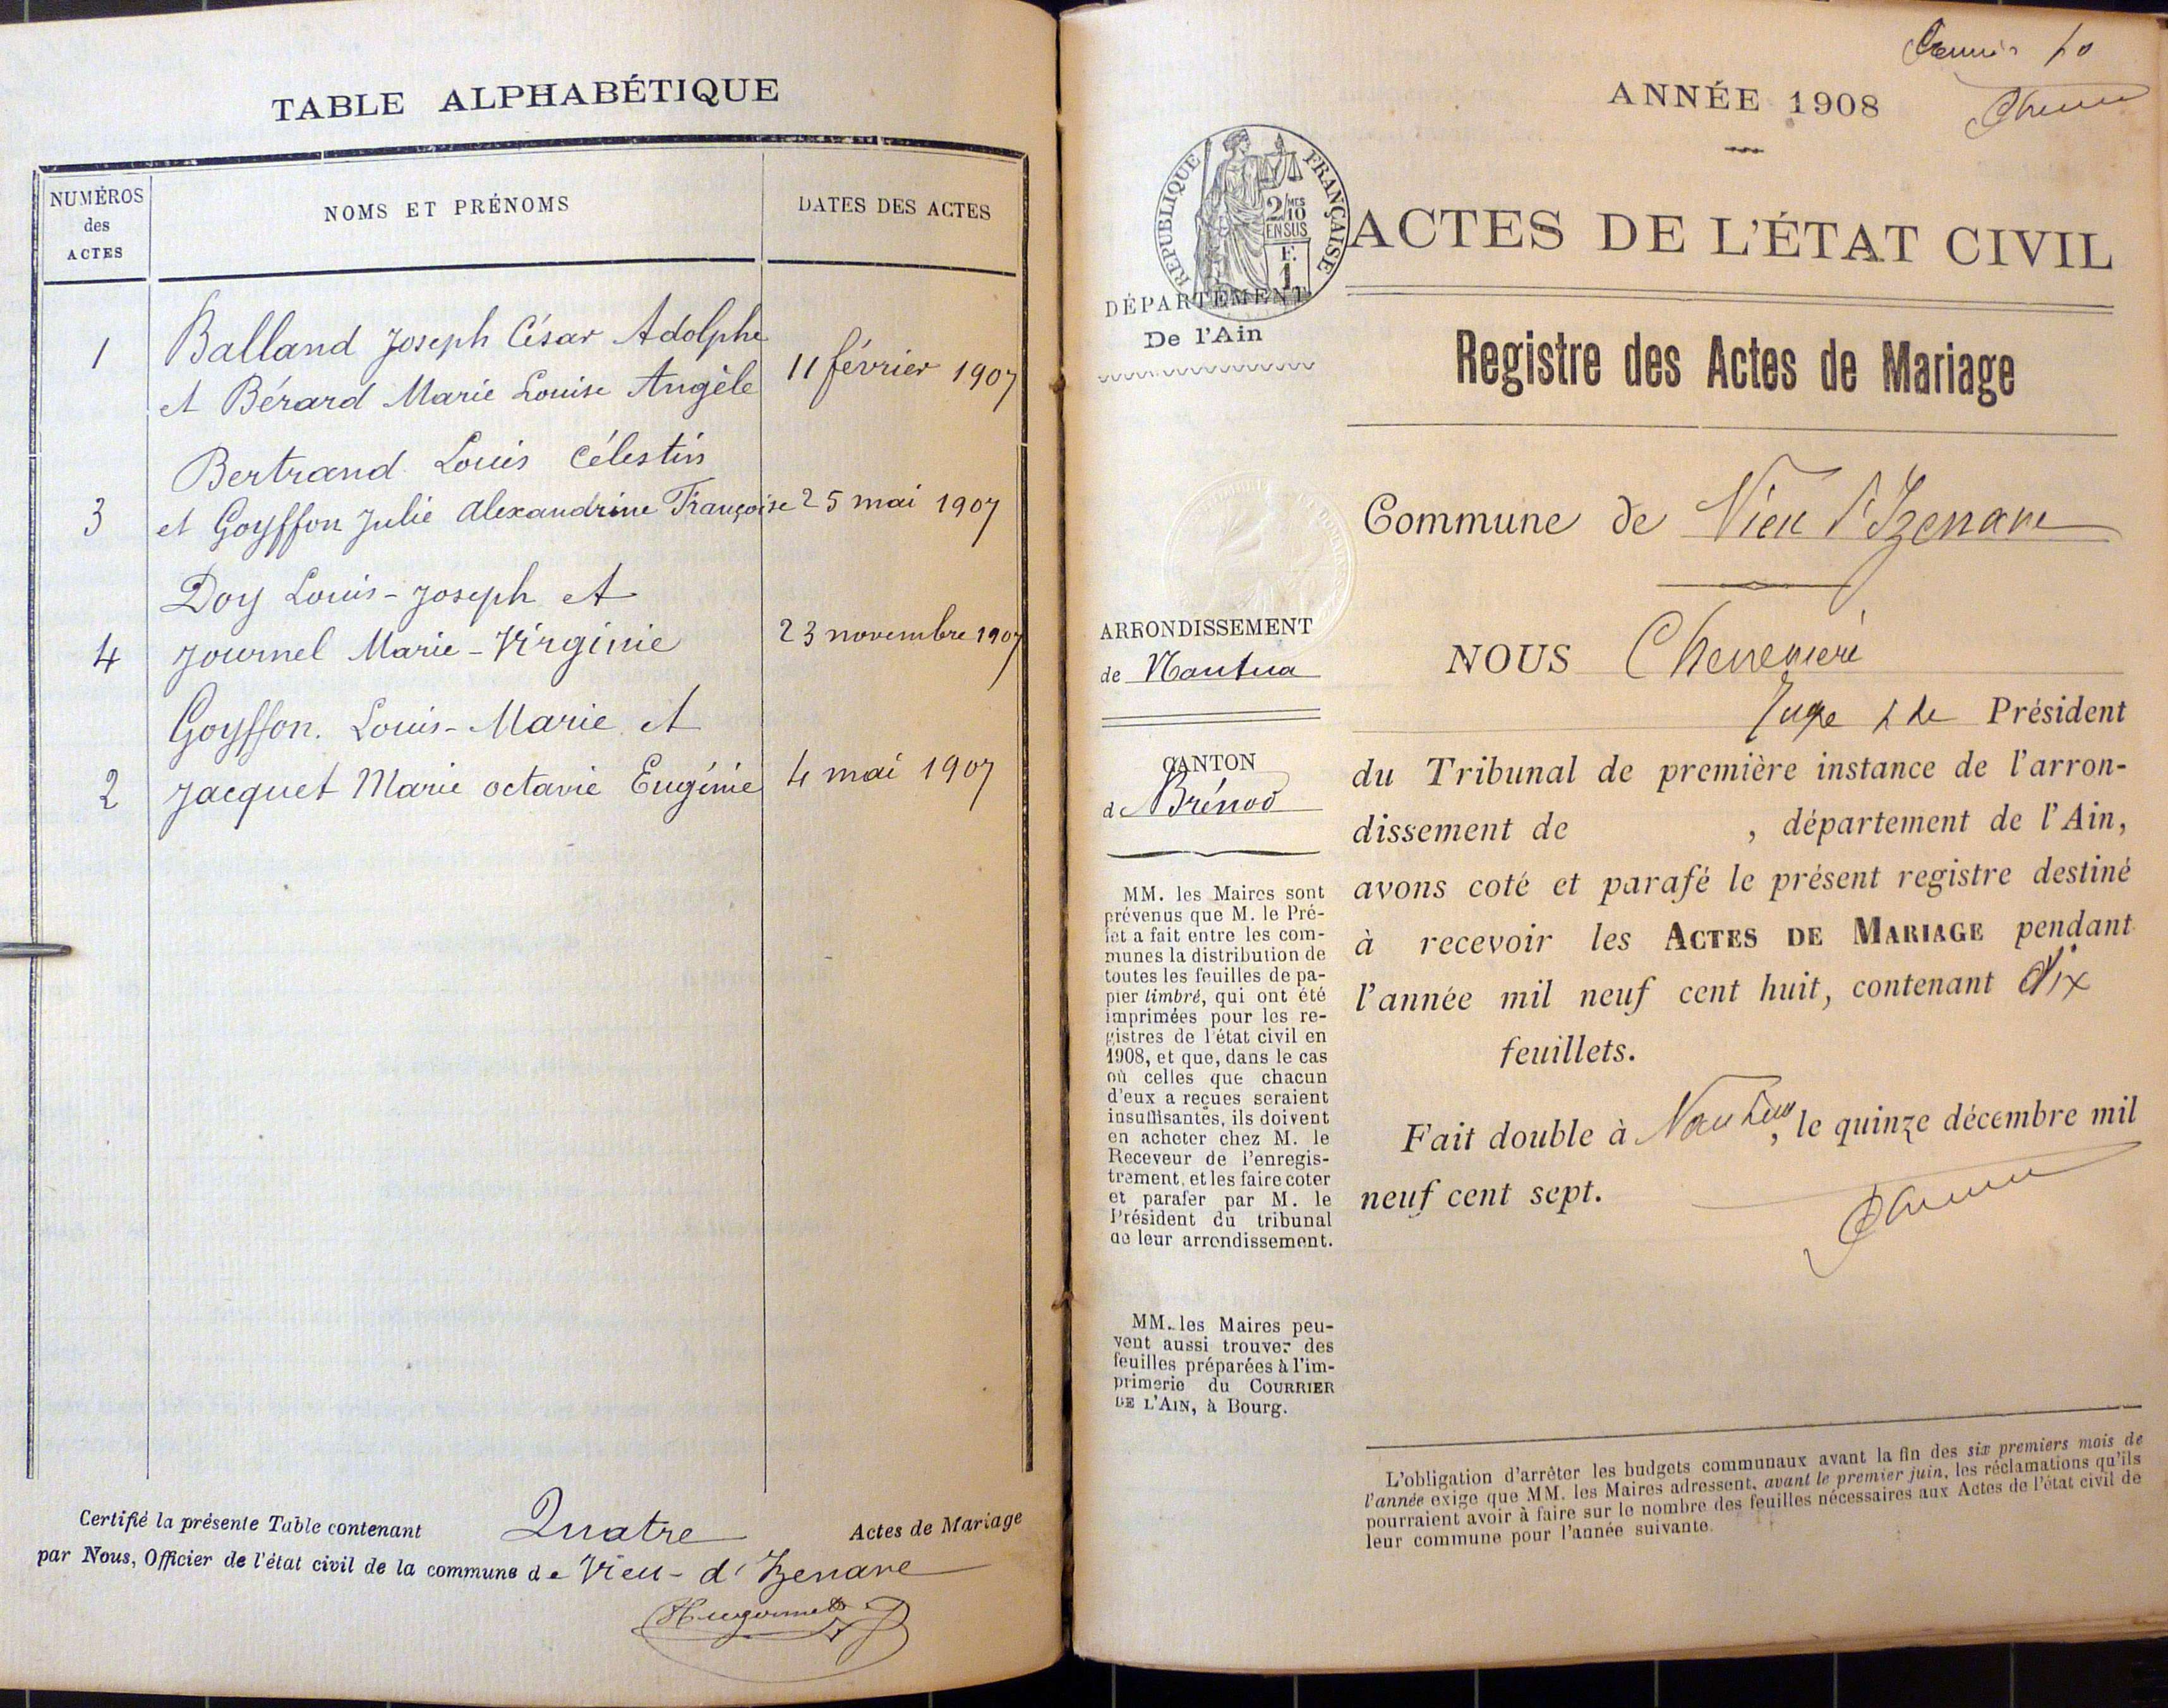 TABLE ALPHABÉTIQUE
NUMÉROS
des
ACTES
NOMS ET PRÉNOMS
DATES DES ACTES
1
Balland Joseph César Adolphe
et Bérard Marie Louise Angèle
11 février 1907
3
Bertrand Louis Célestin
et Goyffon Julie Alexandrine Françoise
25 mai 1907
4
Doy Louis-Joseph et
Journel Marie-Virginie
23 novembre 1907
2
Goyffon. Louis-Marie et
Jacquet Marie octavie Eugénie
4 mai 1907
Certifié la présente Table contenant Quatre Actes de Mariage
par Nous, Officier de l'état civil de la commune de Vieu-d'Izenave
Hugonnet
ANNÉE 1908
RÉPUBLIQUE FRANÇAISE
2/10MES
EN SUS
F.
1
ACTES DE L'ÉTAT CIVIL
DÉPARTEMENT
De l'Ain
Registre des Actes de Mariage
Commune de Vieu d'Izenave
ARRONDISSEMENT
de Nantua
CANTON
de Brénod
MM. les Maires sont
prévenus que M. le Pré-
fet a fait entre les com-
munes la distribution de
toutes les feuilles de pa-
pier timbré, qui ont été
imprimées pour les re-
gistres de l'état civil en
1908, et que, dans le cas
où celles que chacun
d'eux a reçues seraient
insuffisantes, ils doivent
en acheter chez M. le
Receveur de l'enregis-
trement, et les faire coter
et parafer par M. le
Président du tribunal
de leur arrondissement.
MM. les Maires peu-
vent aussi trouver des
feuilles préparées à l'im-
primerie du COURRIER
DE L'AIN, à Bourg.
NOUS
Juge Président
du Tribunal de première instance de l'arron-
dissement de , département de l'Ain,
avons coté et parafé le présent registre destiné
à recevoir les ACTES DE MARIAGE pendant
l'année mil neuf cent huit, contenant dix
feuillets.
Fait double à Nantua, le quinze décembre mil
neuf cent sept.
L'obligation d'arrêter les budgets communaux avant la fin des six premiers mois de
l'année exige que MM. les Maires adressent, avant le premier juin, les réclamations qu'ils
pourraient avoir à faire sur le nombre des feuilles nécessaires aux Actes de l'état civil de
leur commune pour l'année suivante.